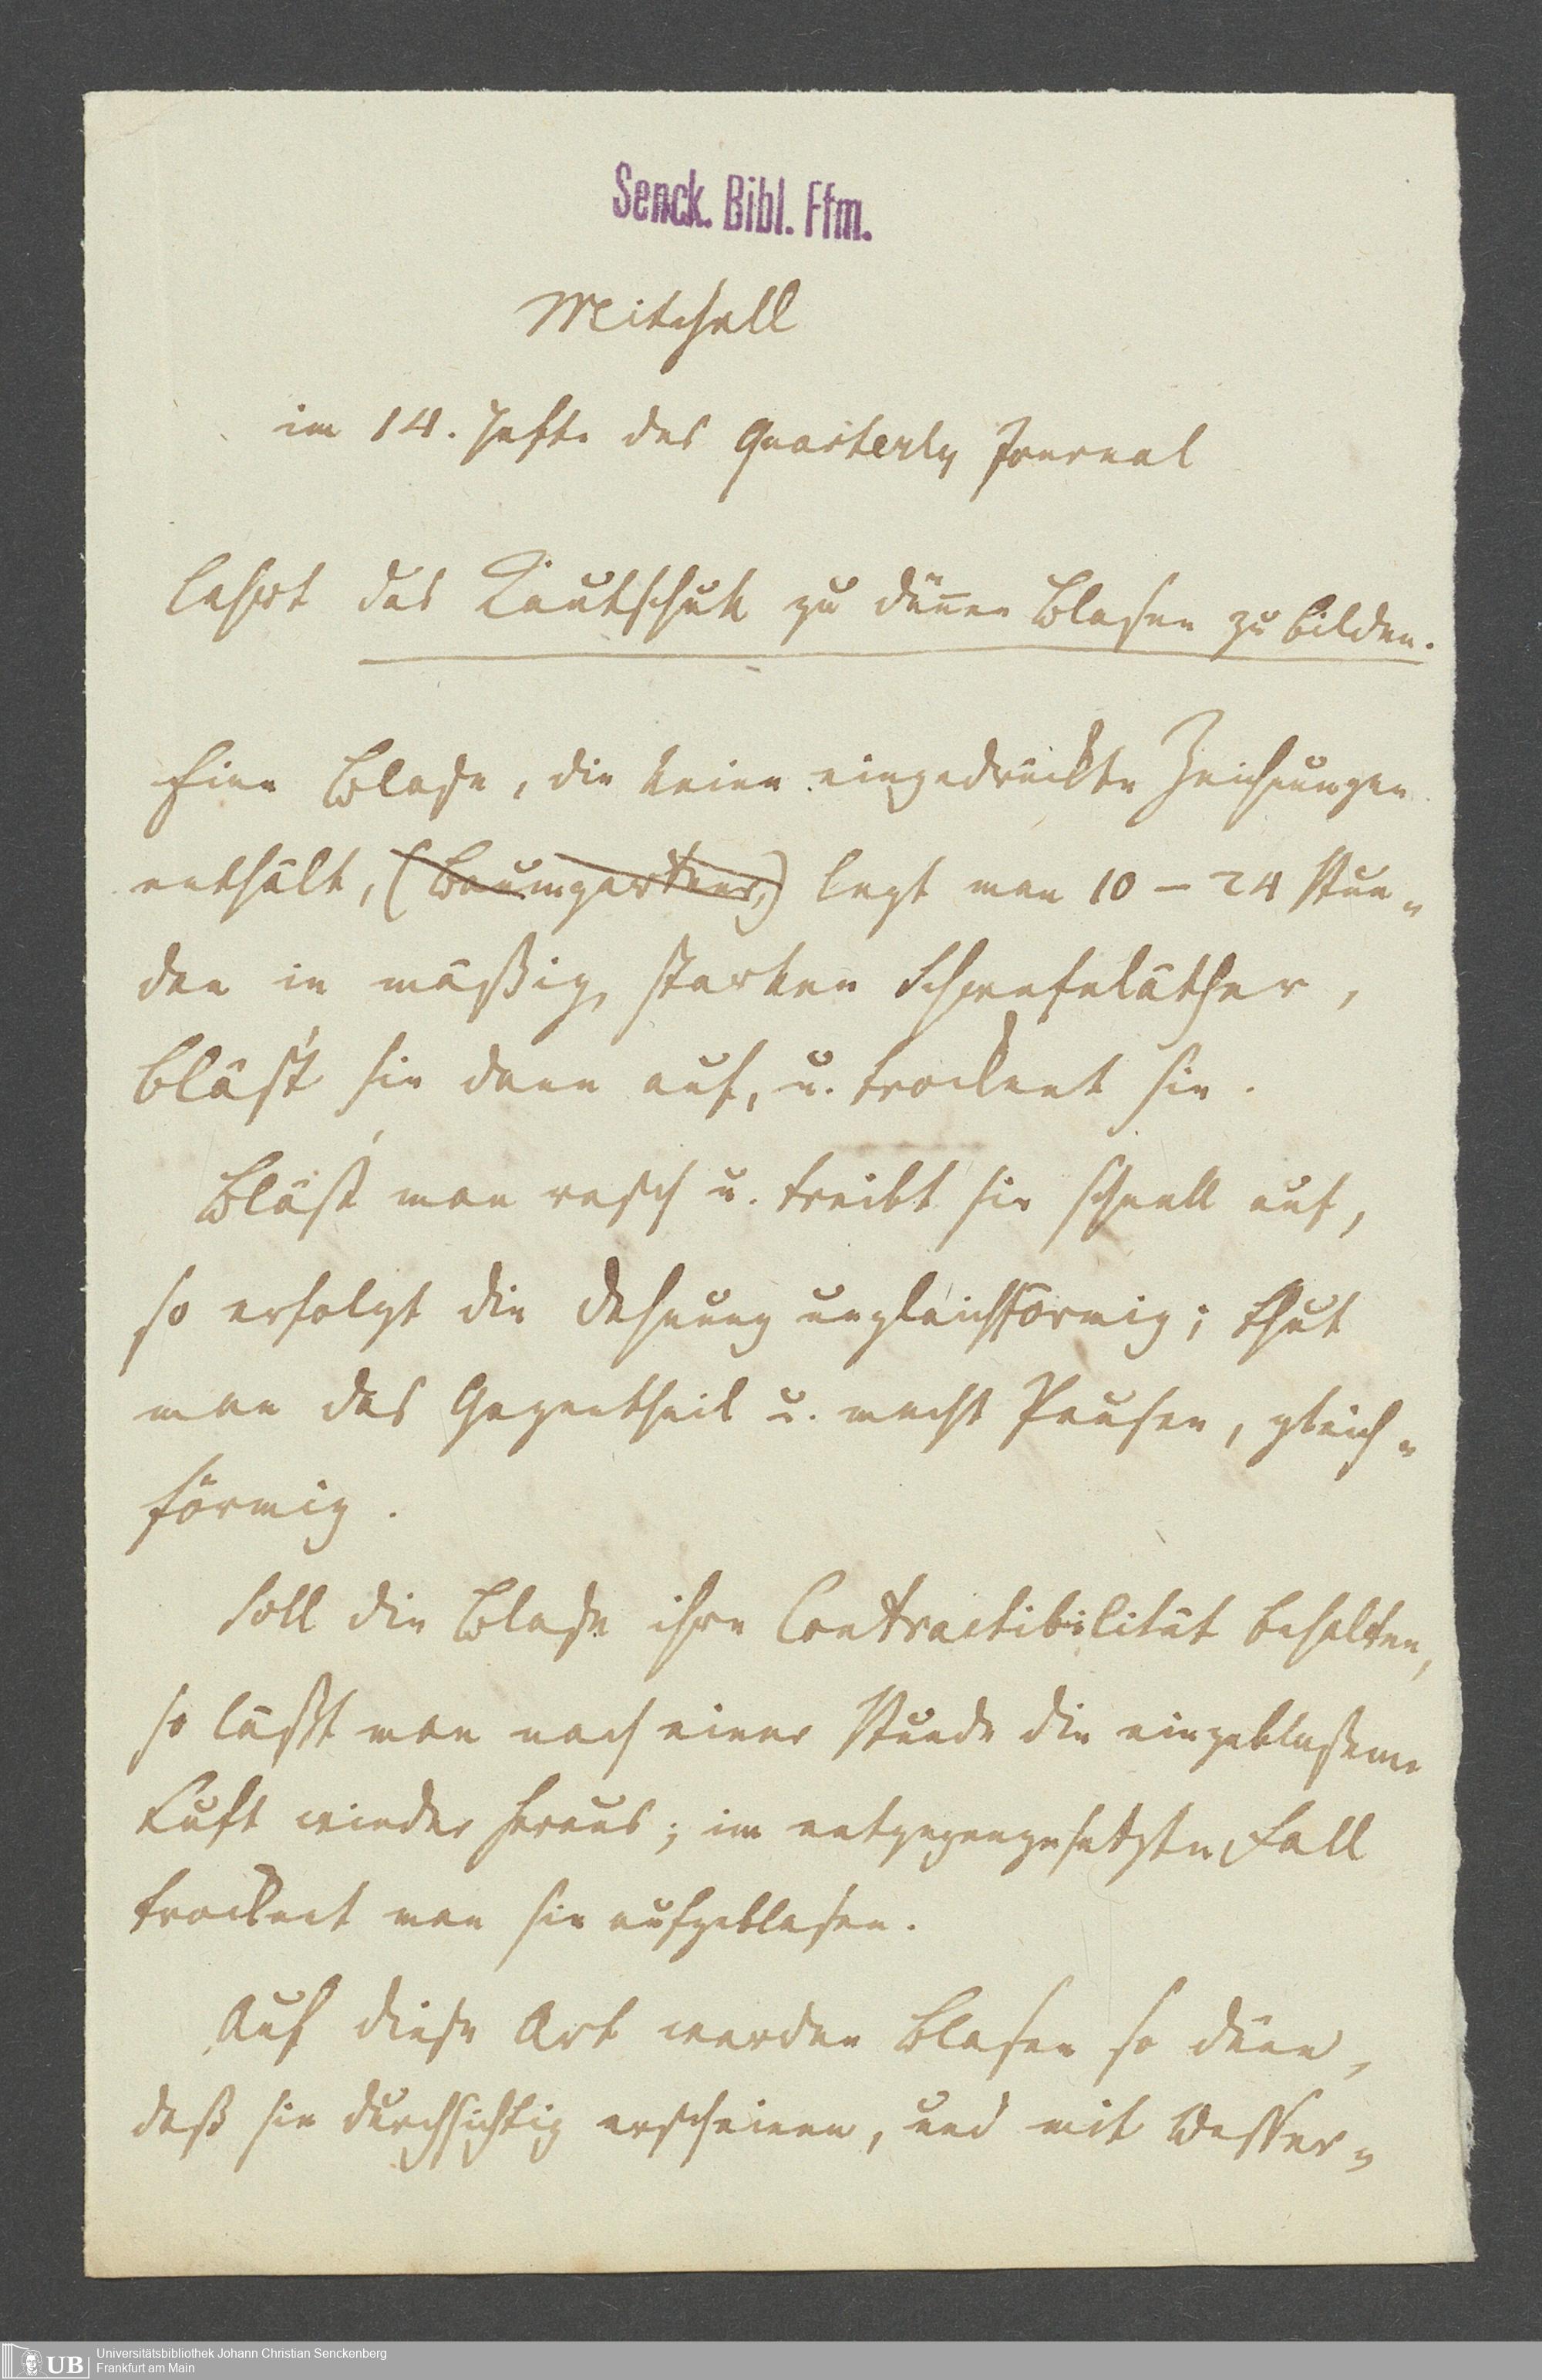 Senck. Bibl. Ffm.
Mitchell
im 14. Hefte des Quarterly Journal
lehrt das Kautschuk zu dünnen Blasen zu bilden.
Eine Blase, die keine eingedrückte Zeichnungen
enthält, (Baumgartner,) legt man 10 – 24 Stun-
den in mäßig starken Schwefeläther,
bläs't sie dann auf, u. trocknet sie.
Bläs't man rasch u. treibt sie schnell auf,
so erfolgt die Dehnung ungleichförmig; thut
man das Gegentheil u. macht Pausen, gleich-
förmig.
Soll die Blase ihre Contractibilität behalten,
so läßt man nach einer Stunde die eingeblasene
Luft wieder heraus; im entgegengesetzten Fall
trocknet man sie aufgeblasen.
Auf diese Art werden Blasen so dünn,
daß sie durchsichtig erscheinen, und mit Wasser-
Universitätsbibliothek Johann Christian Senckenberg
Frankfurt am Main
UB